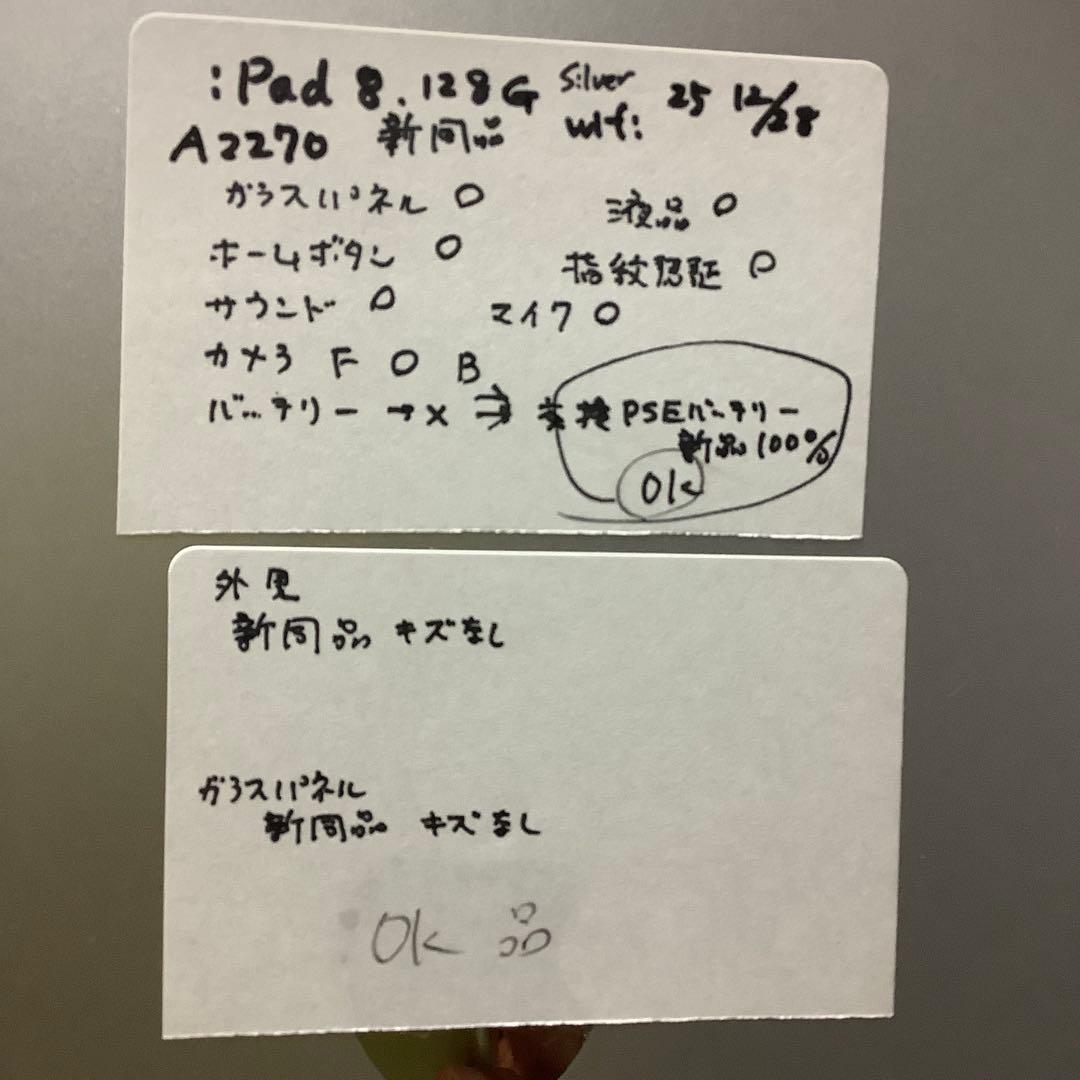 iPad 8.128G Silver 25 12/28
A2270 新同品 Wifi
ガラスパネル O 液晶 O
ホームボタン O 指紋認証 O
サウンド O マイク O
カメラ F O B
バッテリー → × ⇒ 交換 PSEバッテリー
新品 100%
Ok
外見
新同品 キズなし
ガラスパネル
新同品 キズなし
Ok 品